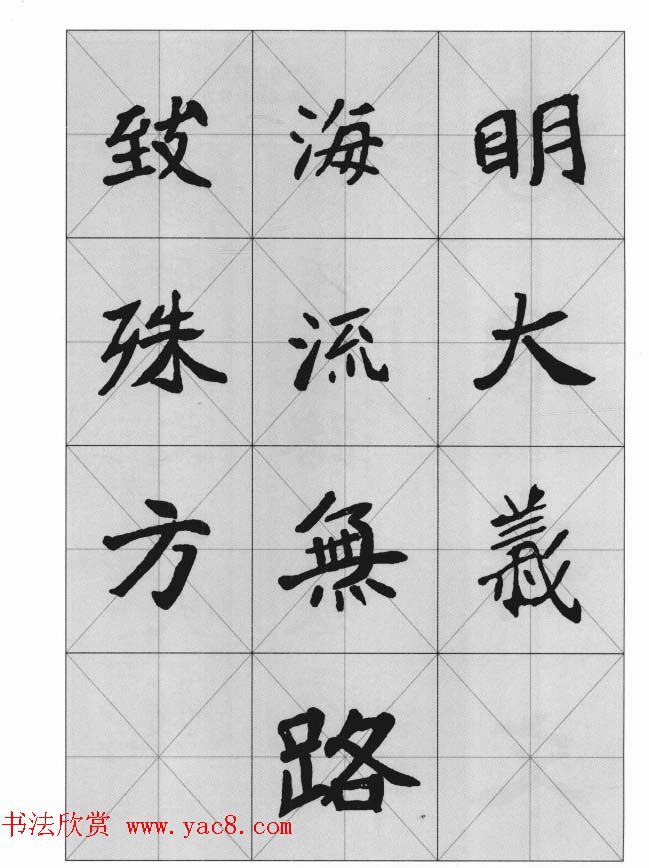 明大義
海流無路
致殊方
书法欣赏 www.yac8.com